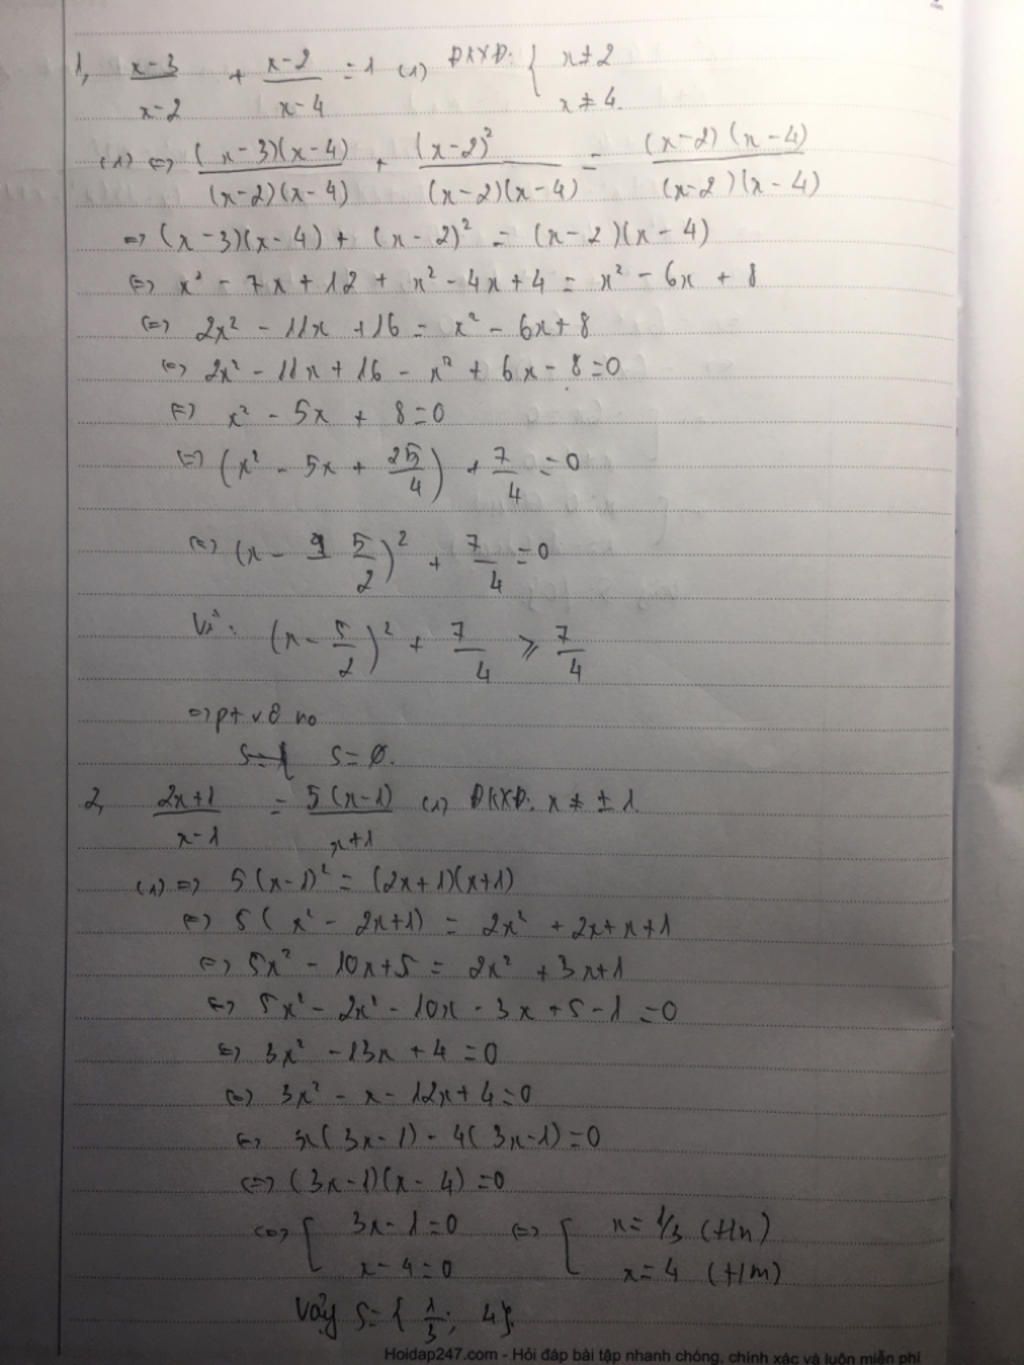 1, x-3/x-2 + x-2/x-4 = 1 (1) ĐKXĐ: { x ≠ 2
x ≠ 4.
(1) <=> (x-3)(x-4)/(x-2)(x-4) + (x-2)²/(x-2)(x-4) = (x-2)(x-4)/(x-2)(x-4)
=> (x-3)(x-4) + (x-2)² = (x-2)(x-4)
<=> x² - 7x + 12 + x² - 4x + 4 = x² - 6x + 8
<=> 2x² - 11x + 16 = x² - 6x + 8
<=> 2x² - 11x + 16 - x² + 6x - 8 = 0
<=> x² - 5x + 8 = 0
<=> (x² - 5x + 25/4) + 7/4 = 0
<=> (x - 5/2)² + 7/4 = 0
Vì: (x - 5/2)² + 7/4 ⩾ 7/4
=> pt vô no
S = ∅.
2, 2x+1/x-1 = 5(x-1)/x+1 (1) ĐKXĐ: x ≠ ± 1.
(1) => 5(x-1)² = (2x+1)(x+1)
<=> 5(x² - 2x+1) = 2x² + 2x + x + 1
<=> 5x² - 10x + 5 = 2x² + 3x + 1
<=> 5x² - 2x² - 10x - 3x + 5 - 1 = 0
<=> 3x² - 13x + 4 = 0
<=> 3x² - x - 12x + 4 = 0
<=> x(3x-1) - 4(3x-1) = 0
<=> (3x-1)(x-4) = 0
<=> [ 3x-1 = 0 <=> [ x = 1/3 (t/m)
x-4 = 0 x = 4 (t/m)
Vậy S = { 1/3; 4}.
Hoidap247.com - Hỏi đáp bài tập nhanh chóng, chính xác và luôn miễn phí